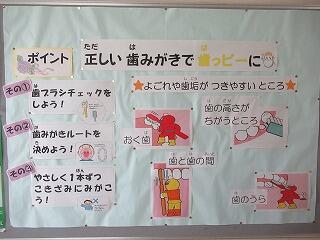 正しい歯みがきで歯ッピーに
ポイント
その①
歯ブラシチェックを
しよう！
その②
歯みがきルートを
決めよう！
その③
やさしく１本ずつ
こきざみにみがこ
う！
★よごれや歯垢がつきやすいところ★
おく歯
歯の高さが
ちがうところ
歯と歯の間
歯のうら